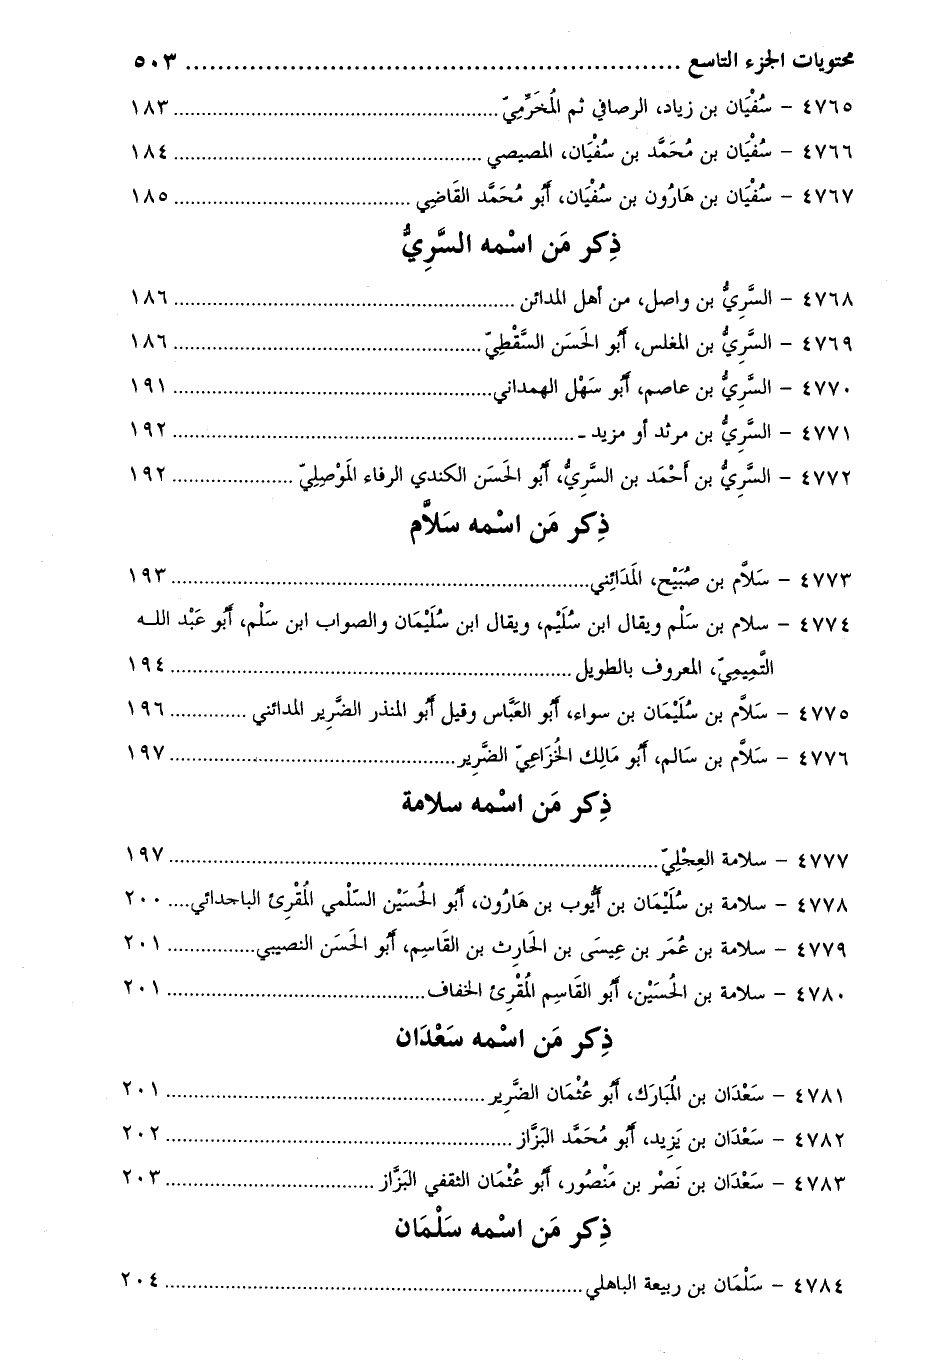 محتويات الجزء التاسع ............................................................ ٥٠٣
٤٧٦٥ - سُفْيَان بن زياد، الرصافي ثم المُخَرِّمِيّ ............................................................ ١٨٣
٤٧٦٦ - سُفْيَان بن مُحَمَّد بن سُفْيَان، المصيصي ............................................................ ١٨٤
٤٧٦٧ - سُفْيَان بن هَارُون بن سُفْيَان، أَبُو مُحَمَّد القَاضِي ............................................................ ١٨٥
ذِكر مَن اسْمه السَّرِيُّ
٤٧٦٨ - السَّرِيُّ بن واصل، من أهل المدائن ............................................................ ١٨٦
٤٧٦٩ - السَّرِيُّ بن المغلس، أَبُو الحَسَن السَّقْطِيّ ............................................................ ١٨٦
٤٧٧٠ - السَّرِيُّ بن عاصم، أَبُو سَهْل الهمداني ............................................................ ١٩١
٤٧٧١ - السَّرِيُّ بن مرثد أو مزيد - ............................................................ ١٩٢
٤٧٧٢ - السَّرِيُّ بن أَحْمَد بن السَّرِيُّ، أَبُو الحَسَن الكندي الرفاء المَوْصِلِيّ ...................... ١٩٢
ذِكر مَن اسْمه سَلاَّم
٤٧٧٣ - سَلاَّم بن صُبَيْح، المَدَائِني ............................................................ ١٩٣
٤٧٧٤ - سلام بن سَلْم ويقال ابن سُلَيْم، ويقال ابن سُلَيْمَان والصواب ابن سَلْم، أَبُو عَبْد اللـه
التَّمِيمِيّ، المعروف بالطويل ............................................................ ١٩٤
٤٧٧٥ - سَلاَّم بن سُلَيْمَان بن سواء، أَبُو العَبَّاس وقيل أَبُو المنذر الضَّرِير المدائني .............. ١٩٦
٤٧٧٦ - سَلاَّم بن سَالم، أَبُو مَالِك الخُزَاعِيّ الضَّرِير ............................................................ ١٩٧
ذِكر مَن اسْمه سلامة
٤٧٧٧ - سلامة العِجْلِيّ ............................................................ ١٩٧
٤٧٧٨ - سلامة بن سُلَيْمَان بن أَيُّوب بن هَارُون، أَبُو الحُسَيْن السّلْمي المُقْرِئ الباحدائي .... ٢٠٠
٤٧٧٩ - سلامة بن عُمَر بن عِيسَى بن الحَارِث بن القَاسِم، أَبُو الحَسَن النصيبي ................ ٢٠١
٤٧٨٠ - سلامة بن الحُسَيْن، أَبُو القَاسِم المُقْرِئ الخفاف ............................................................ ٢٠١
ذِكر مَن اسْمه سَعْدَان
٤٧٨١ - سَعْدَان بن المُبَارَك، أَبُو عُثْمَان الضَّرِير ............................................................ ٢٠١
٤٧٨٢ - سَعْدَان بن يَزِيد، أَبُو مُحَمَّد البَزَّاز ............................................................ ٢٠٢
٤٧٨٣ - سَعْدَان بن نَصْر بن مَنْصُور، أَبُو عُثْمَان الثقفي البَزَّاز ...................................... ٢٠٣
ذِكر مَن اسْمه سَلْمَان
٤٧٨٤ - سَلْمَان بن ربيعة الباهلي ............................................................ ٢٠٤